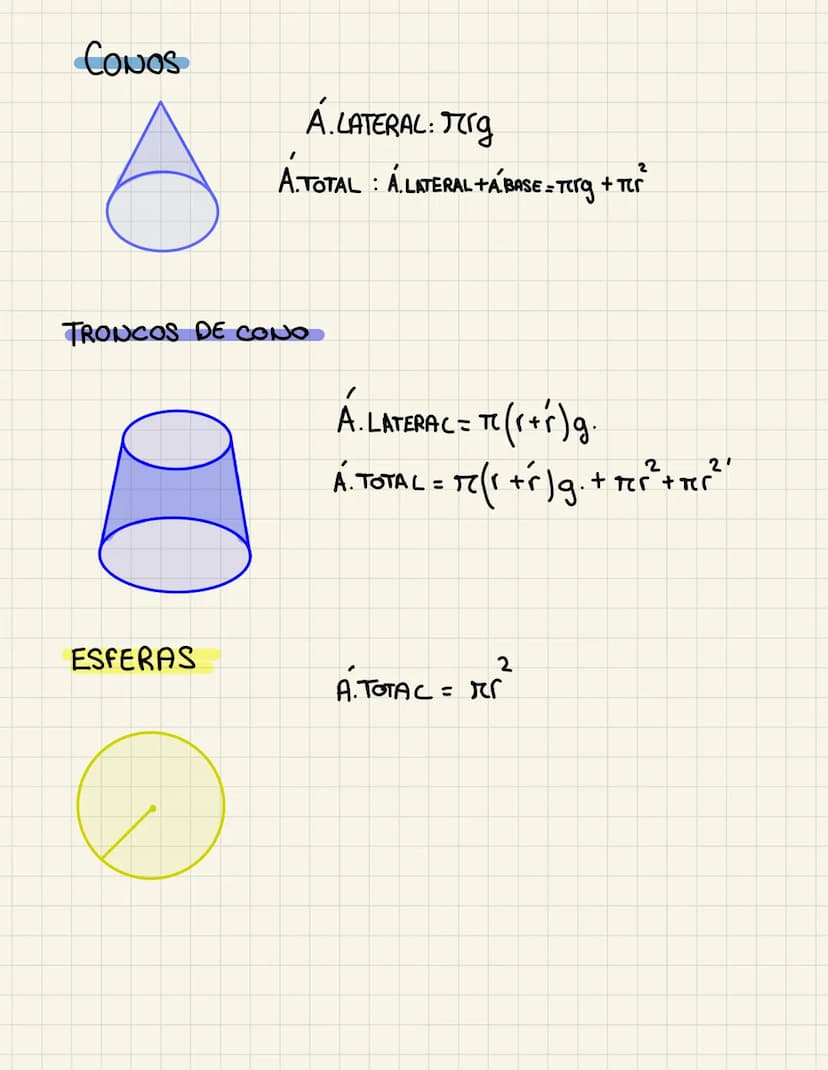 CONOS
Á.LATERAL: πrg
Á.TOTAL : Á.LATERAL+Á.BASE=πrg + πr²
TRONCOS DE CONO
Á.LATERAL= π(r+r')g.
Á.TOTAL = π(r+r')g.+ πr²+πr²'
ESFERAS
Á.TOTAL = πr²